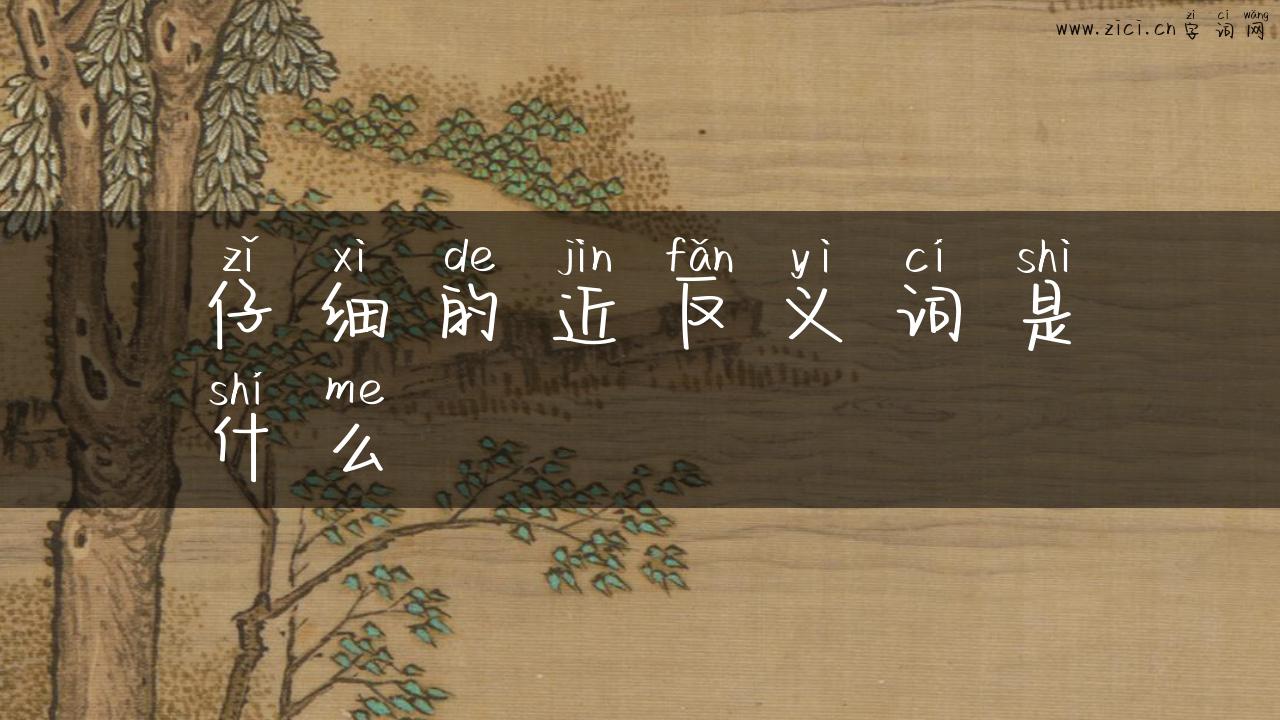 zì cí wǎng
www.zici.cn 字词网
zǐ xì de jìn fǎn yì cí shì
仔细的近反义词是
shí me
什么